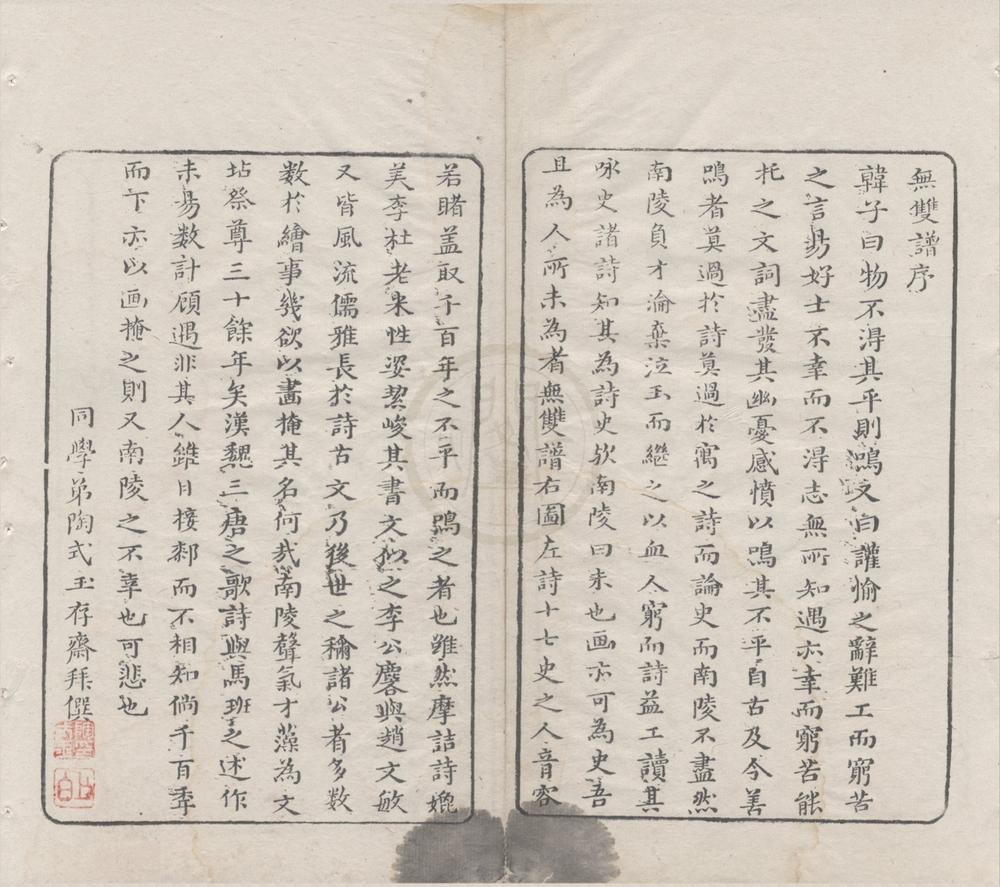 無雙譜序
韓子曰物不得其平則鳴又曰讙愉之辭難工而窮苦
之言易好士不幸而不得志無所知遇亦幸而窮苦能
托之文詞盡發其幽憂感憤以鳴其不平自古及今善
鳴者莫過於詩莫過於寓之詩而論史而南陵不盡然
南陵負才淪棄泣玉而繼之以血人窮而詩益工讀其
咏史諸詩知其為詩史欤南陵曰未也画亦可為史吾
且為人所未為者無雙譜右圖左詩十七史之人音容
若睹盖取千百年之不平而鳴之者也雖然摩詰詩媲
美李杜老米性姿絜峻其書文似之李公麐與趙文敏
又皆風流儒雅長於詩古文乃後世之稱諸公者多数
数於繪事幾欲以畵掩其名何哉南陵聲氣才藻為文
坫祭尊三十餘年矣漢魏三唐之歌詩與馬班之述作
未易数計顧遇非其人雖日接鄰而不相知倘千百季
而下亦以画掩之則又南陵之不幸也可悲也
同學弟陶式玉存齋拜僎